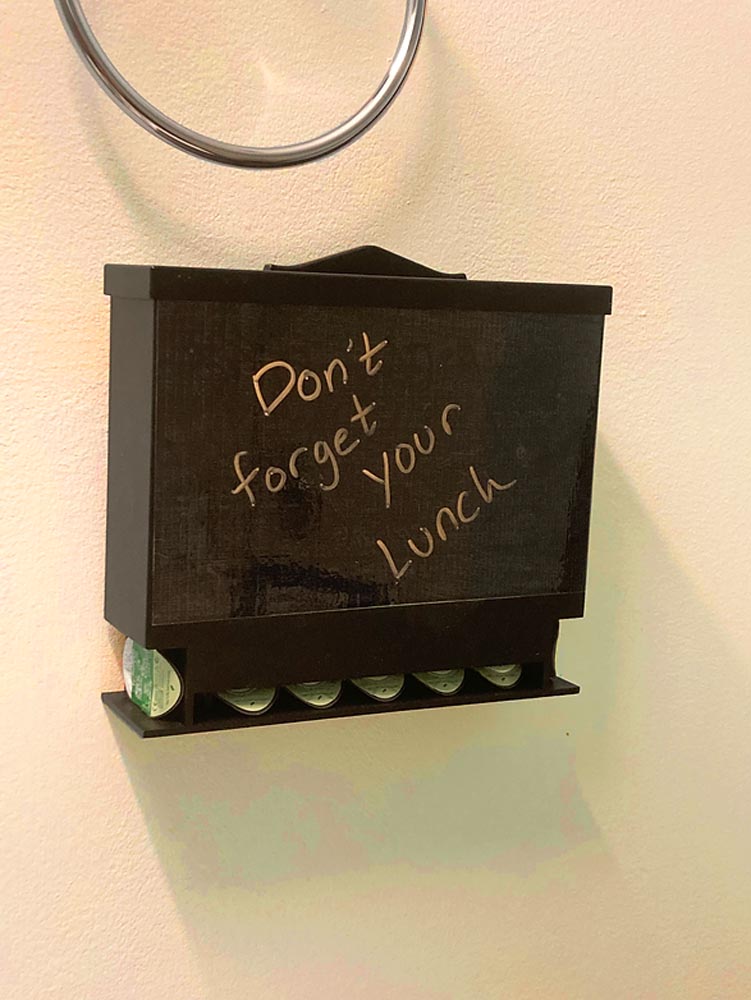 Don't
forget
your
Lunch